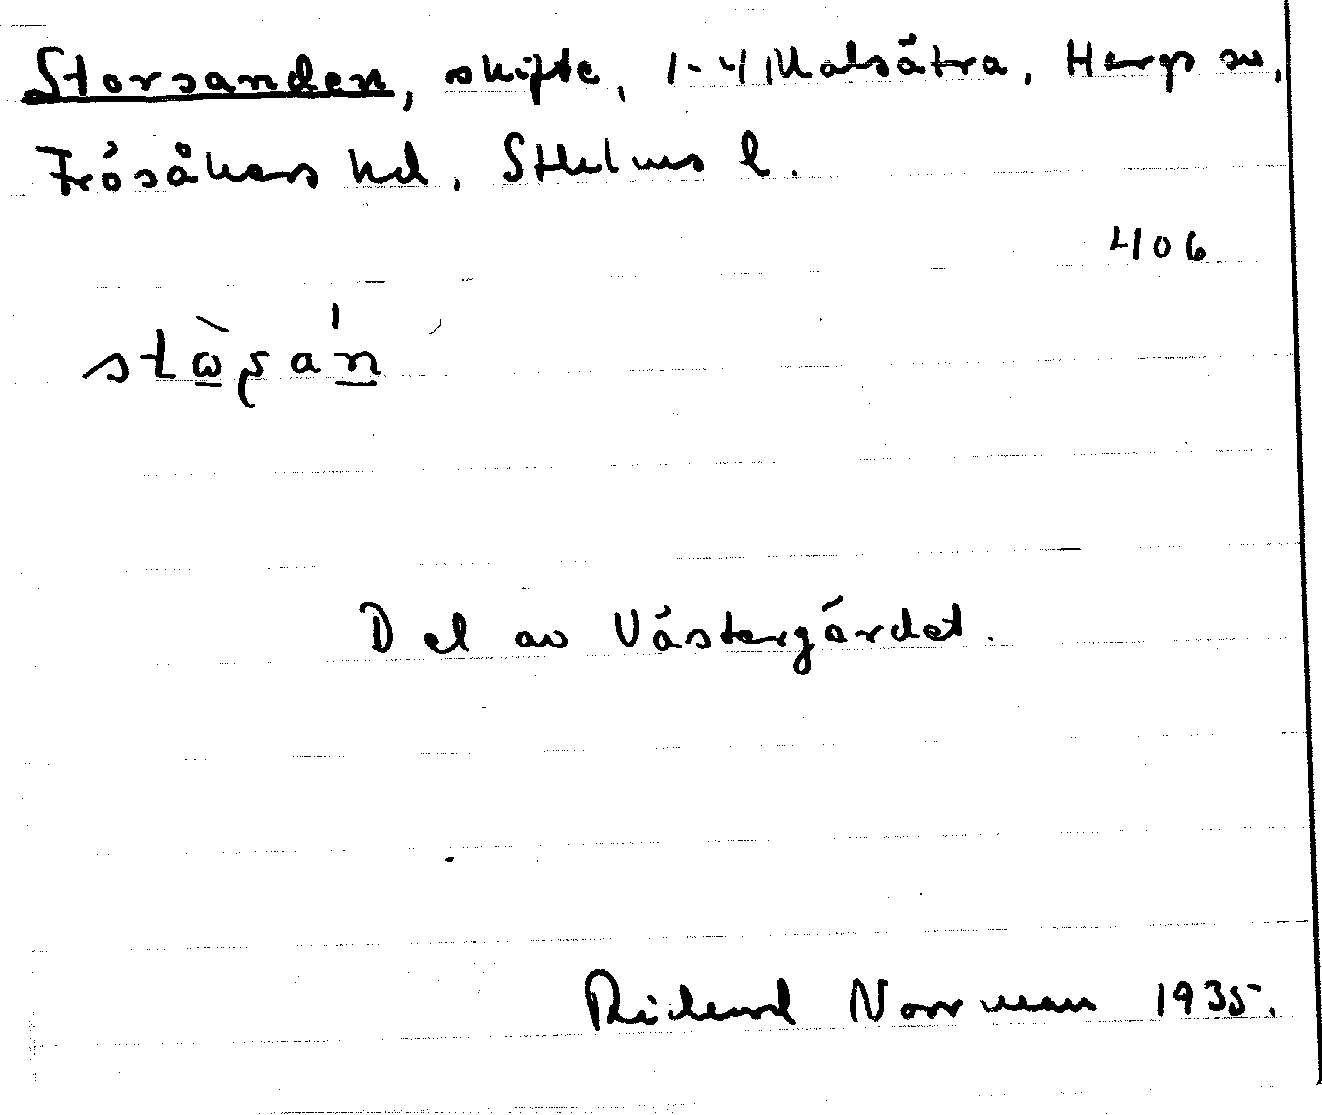 Storsanden, skifte, 1-4 Malsätra, Hargs sn,
Frösåkers hd, Sthlms l.
406
Del av Västergärdet.
Richard Norrman 1935.